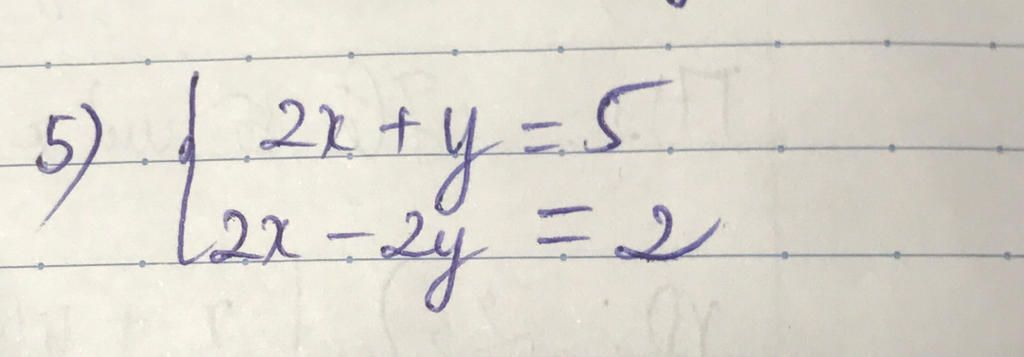 5) { 2x + y = 5
2x - 2y = 2